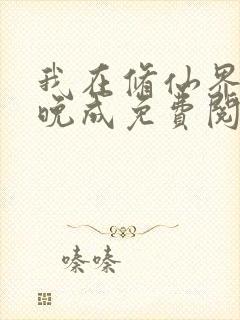 我在修仙界
晚成免費閱
嗪嗪